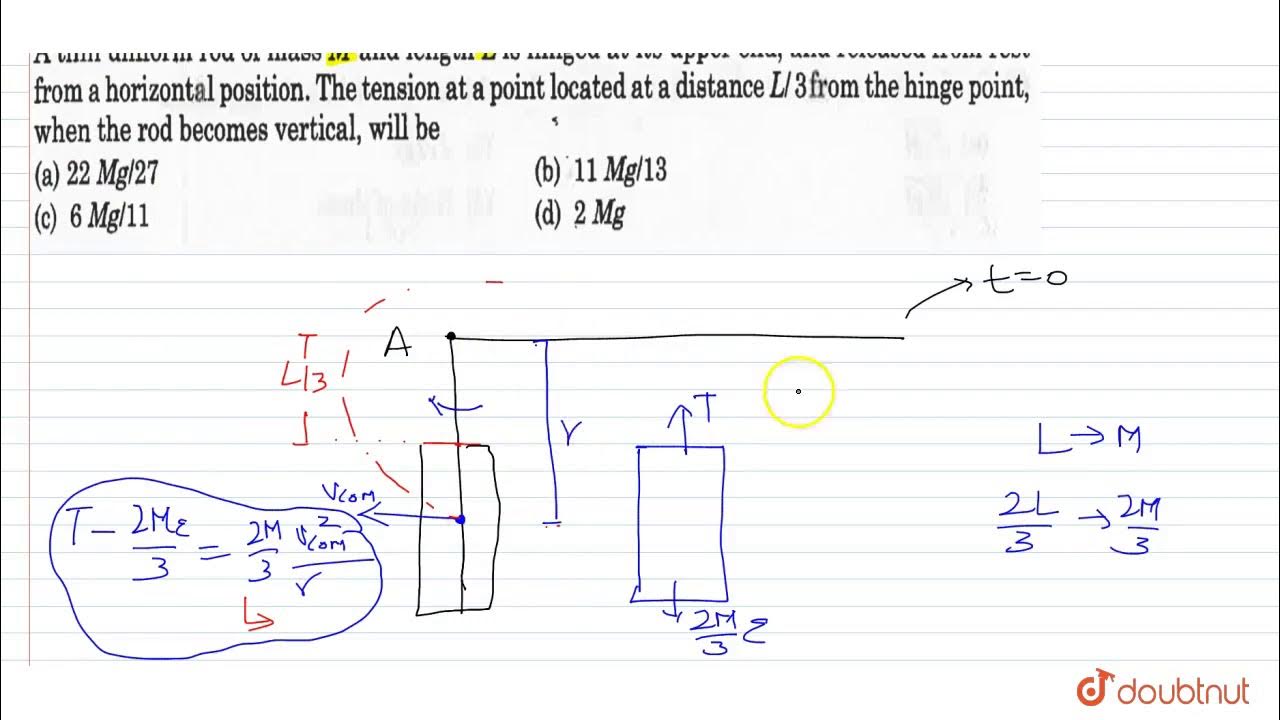 A thin uniform rod of mass M and length L is hinged at its upper end, and released from rest
from a horizontal position. The tension at a point located at a distance L/3 from the hinge point,
when the rod becomes vertical, will be
(a) 22 Mg/27
(b) 11 Mg/13
(c) 6 Mg/11
(d) 2 Mg
t=0
A
L/3
T
r
L → M
Vcom
T - 2Mg/3 = 2M/3 V²com/r
2L/3 → 2M/3
2M/3 g
doubtnut